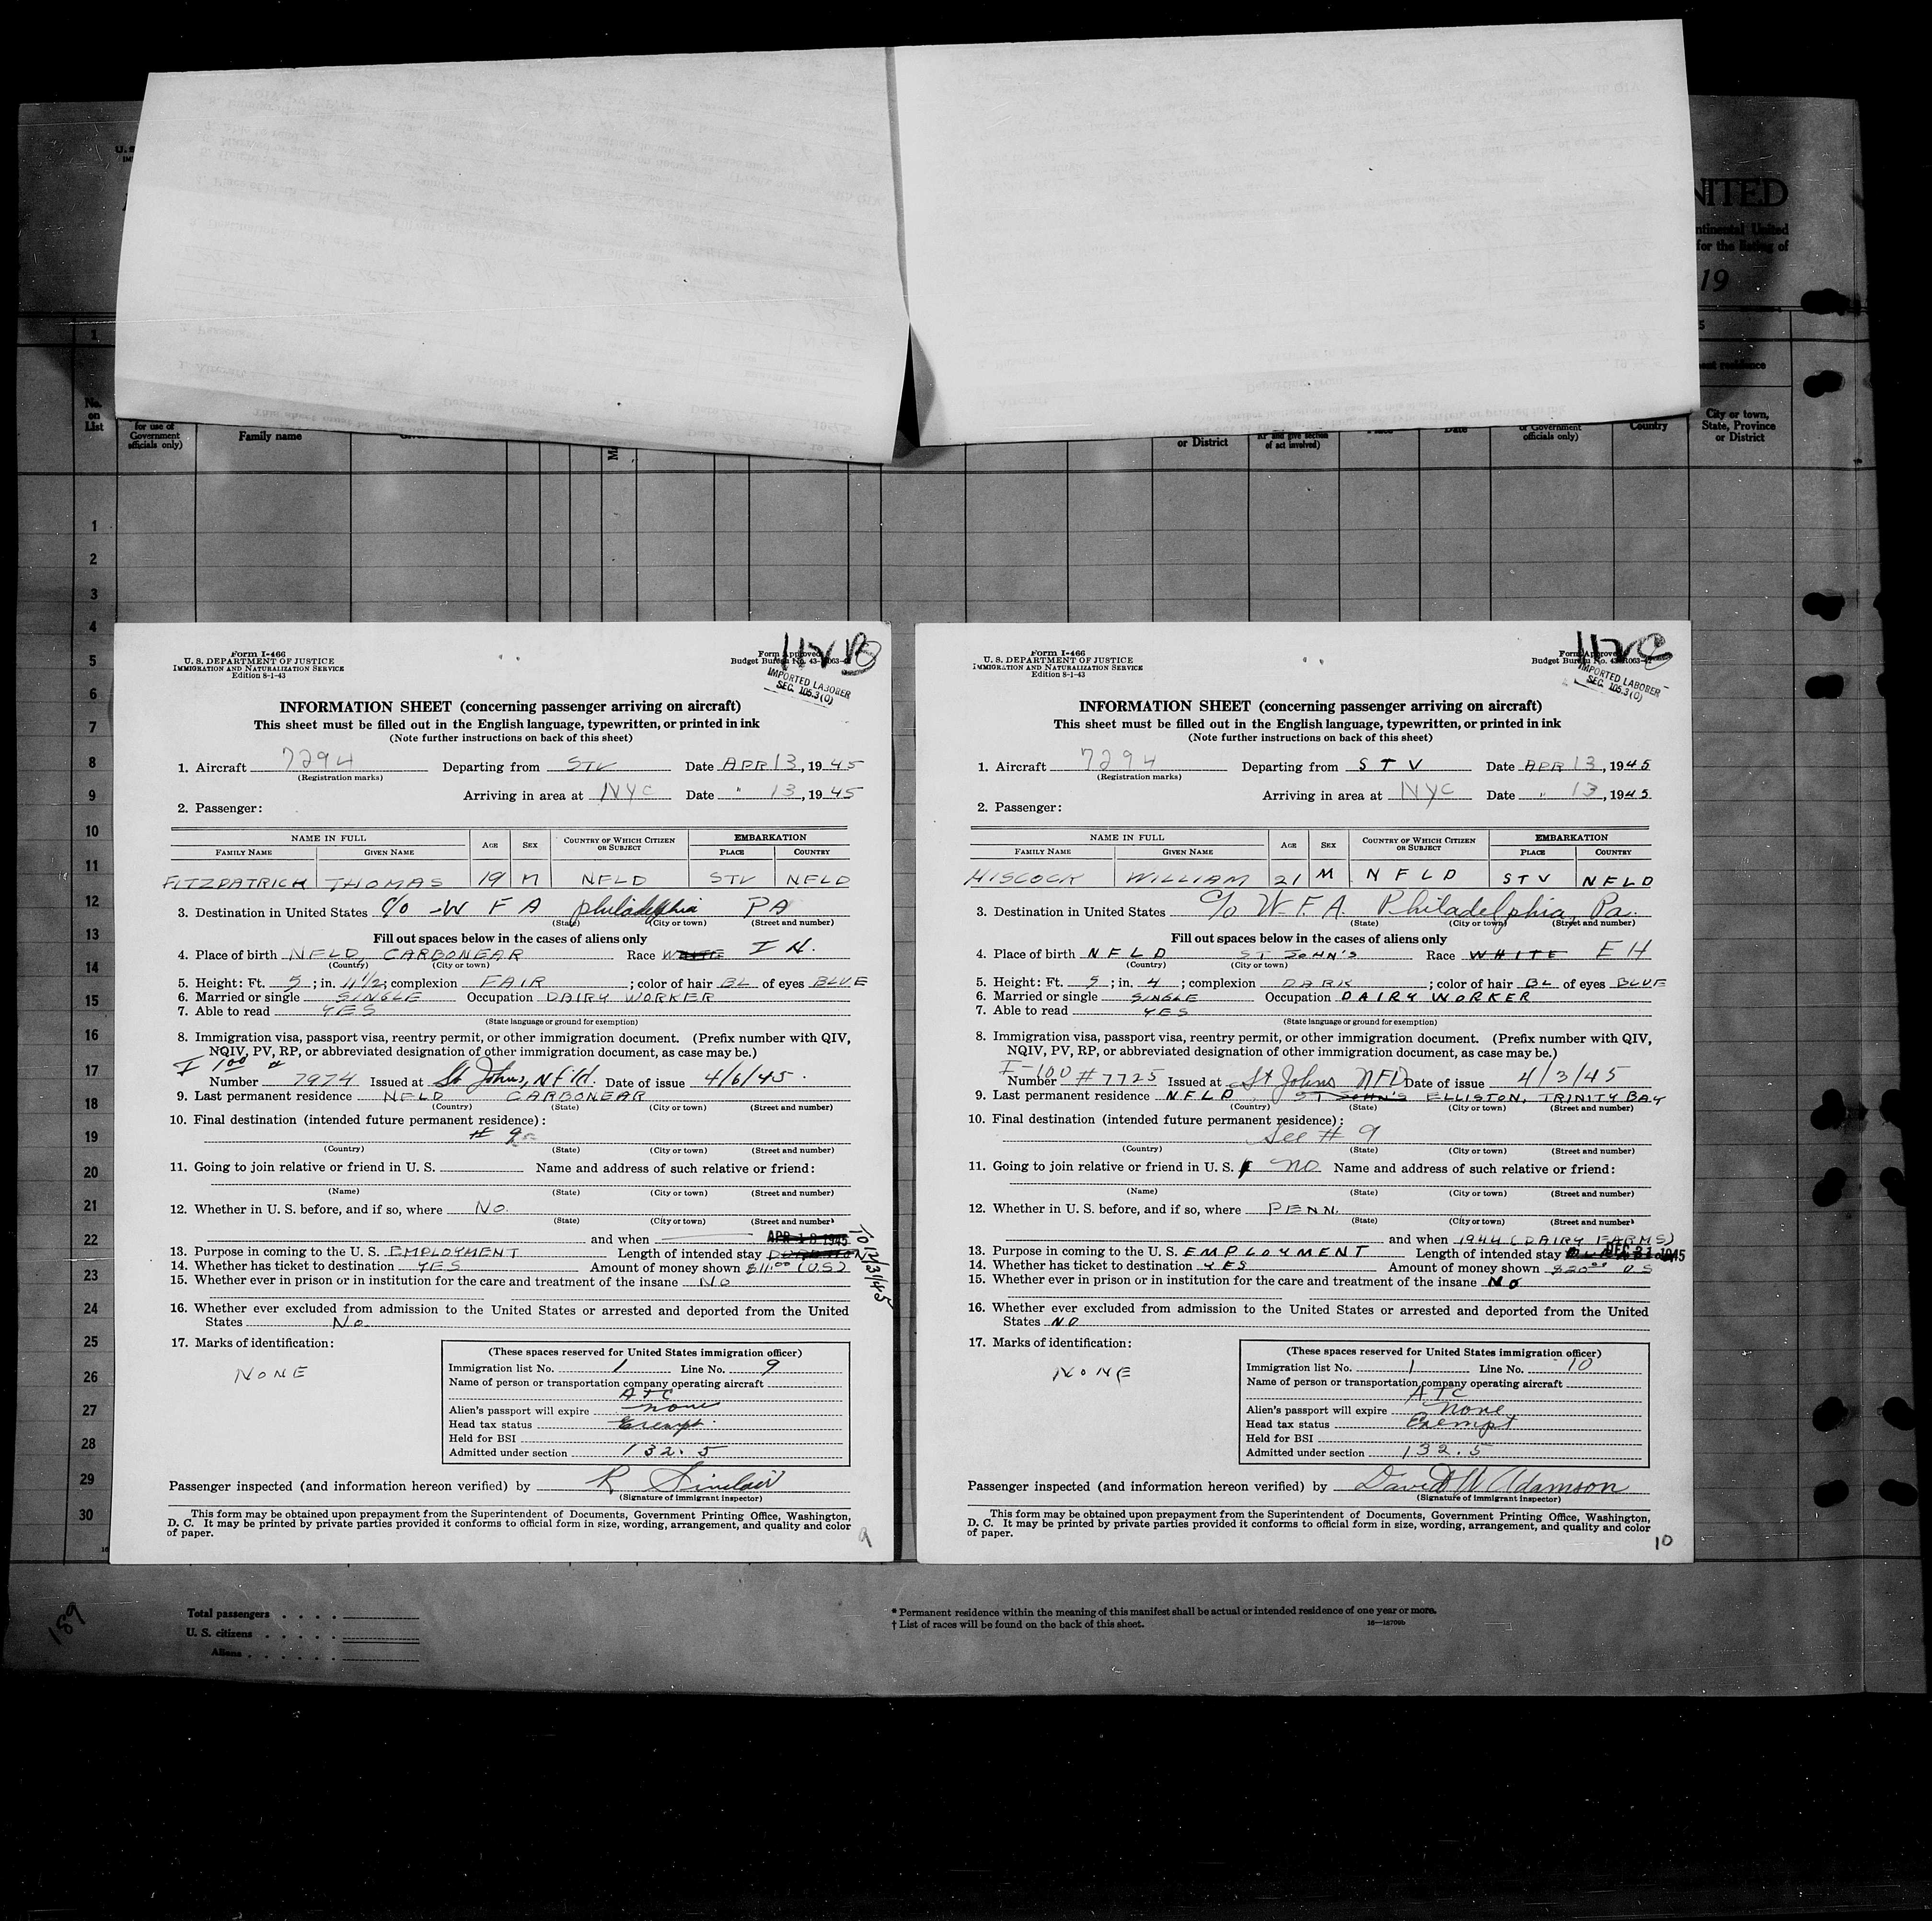 NITED
ntinental United
for the listing of
19
No. on List
for use of Government officials only)
Family name
or District
of act involved)
Date
or Government officials only)
Country
City or town, State, Province or District
1
2
3
4
5
6
7
8
9
10
11
12
13
14
15
16
17
18
19
20
21
22
23
24
25
26
27
28
29
30
Form I-466
U. S. DEPARTMENT OF JUSTICE
IMMIGRATION AND NATURALIZATION SERVICE
Edition 8-1-43
Form Approved
IMPORTED LABORER
SEC. 105.3 (0)
INFORMATION SHEET (concerning passenger arriving on aircraft)
This sheet must be filled out in the English language, typewritten, or printed in ink
(Note further instructions on back of this sheet)
1. Aircraft 7294 Departing from STV Date APR 13, 1945
(Registration marks)
Arriving in area at NYC Date " 13, 1945
2. Passenger:
NAME IN FULL AGE SEX COUNTRY OF WHICH CITIZEN OR SUBJECT EMBARKATION
FAMILY NAME GIVEN NAME PLACE COUNTRY
FITZPATRICK THOMAS 19 M NFLD STV NFLD
3. Destination in United States C/o W F A Philadelphia PA
(State) (City or town) (Street and number)
Fill out spaces below in the cases of aliens only
4. Place of birth NFLD CARBONEAR Race WHITE I H.
(Country) (City or town)
5. Height: Ft. 5; in. 11½; complexion FAIR; color of hair BL of eyes BLUE
6. Married or single SINGLE Occupation DAIRY WORKER
7. Able to read YES
(State language or ground for exemption)
8. Immigration visa, passport visa, reentry permit, or other immigration document. (Prefix number with QIV,
NQIV, PV, RP, or abbreviated designation of other immigration document, as case may be.)
I 100 #
Number 7974 Issued at St Johns, Nfld. Date of issue 4/6/45.
9. Last permanent residence NFLD CARBONEAR
(Country) (State) (City or town) (Street and number)
10. Final destination (intended future permanent residence):
# 9
(Country) (State) (City or town) (Street and number)
11. Going to join relative or friend in U. S. Name and address of such relative or friend:
(Name) (State) (City or town) (Street and number)
12. Whether in U. S. before, and if so, where No.
(State) (City or town) (Street and number)
and when APR 18 1945
13. Purpose in coming to the U. S. EMPLOYMENT Length of intended stay DURATION TO 12/31/45
14. Whether has ticket to destination YES Amount of money shown $11.00 (US)
15. Whether ever in prison or in institution for the care and treatment of the insane No
16. Whether ever excluded from admission to the United States or arrested and deported from the United
States No.
17. Marks of identification:
NONE
(These spaces reserved for United States immigration officer)
Immigration list No. 1 Line No. 9
Name of person or transportation company operating aircraft
ATC
Alien's passport will expire none
Head tax status Exempt
Held for BSI
Admitted under section 132.5
Passenger inspected (and information hereon verified) by R Sinclair
(Signature of immigrant inspector)
This form may be obtained upon prepayment from the Superintendent of Documents, Government Printing Office, Washington,
D. C. It may be printed by private parties provided it conforms to official form in size, wording, arrangement, and quality and color
of paper.
9
Form I-466
U. S. DEPARTMENT OF JUSTICE
IMMIGRATION AND NATURALIZATION SERVICE
Edition 8-1-43
Form Approved
IMPORTED LABORER
SEC. 105.3 (0)
INFORMATION SHEET (concerning passenger arriving on aircraft)
This sheet must be filled out in the English language, typewritten, or printed in ink
(Note further instructions on back of this sheet)
1. Aircraft 7294 Departing from STV Date APR 13, 1945
(Registration marks)
Arriving in area at NYC Date " 13, 1945
2. Passenger:
NAME IN FULL AGE SEX COUNTRY OF WHICH CITIZEN OR SUBJECT EMBARKATION
FAMILY NAME GIVEN NAME PLACE COUNTRY
HISCOCK WILLIAM 21 M NFLD STV NFLD
3. Destination in United States C/o W.F.A. Philadelphia, Pa.
(State) (City or town) (Street and number)
Fill out spaces below in the cases of aliens only
4. Place of birth NFLD ST JOHN'S Race WHITE E H
(Country) (City or town)
5. Height: Ft. 5; in. 4; complexion DARK; color of hair BL of eyes BLUE
6. Married or single SINGLE Occupation DAIRY WORKER
7. Able to read YES
(State language or ground for exemption)
8. Immigration visa, passport visa, reentry permit, or other immigration document. (Prefix number with QIV,
NQIV, PV, RP, or abbreviated designation of other immigration document, as case may be.)
I-100
Number #7725 Issued at St Johns NFD Date of issue 4/3/45
9. Last permanent residence NFLD ST JOHN'S ELLISTON, TRINITY BAY
(Country) (State) (City or town) (Street and number)
10. Final destination (intended future permanent residence):
See # 9
(Country) (State) (City or town) (Street and number)
11. Going to join relative or friend in U. S. no Name and address of such relative or friend:
(Name) (State) (City or town) (Street and number)
12. Whether in U. S. before, and if so, where PENN.
(State) (City or town) (Street and number)
and when 1944 (DAIRY FARMS)
13. Purpose in coming to the U. S. EMPLOYMENT Length of intended stay DEC 31 1945
14. Whether has ticket to destination YES Amount of money shown $20.00 US
15. Whether ever in prison or in institution for the care and treatment of the insane No
16. Whether ever excluded from admission to the United States or arrested and deported from the United
States NO
17. Marks of identification:
NONE
(These spaces reserved for United States immigration officer)
Immigration list No. 1 Line No. 10
Name of person or transportation company operating aircraft
ATC
Alien's passport will expire none
Head tax status Exempt
Held for BSI
Admitted under section 132.5
Passenger inspected (and information hereon verified) by David W Adamson
(Signature of immigrant inspector)
This form may be obtained upon prepayment from the Superintendent of Documents, Government Printing Office, Washington,
D. C. It may be printed by private parties provided it conforms to official form in size, wording, arrangement, and quality and color
of paper.
10
189
Total passengers
U. S. citizens
Aliens
* Permanent residence within the meaning of this manifest shall be actual or intended residence of one year or more.
† List of races will be found on the back of this sheet.